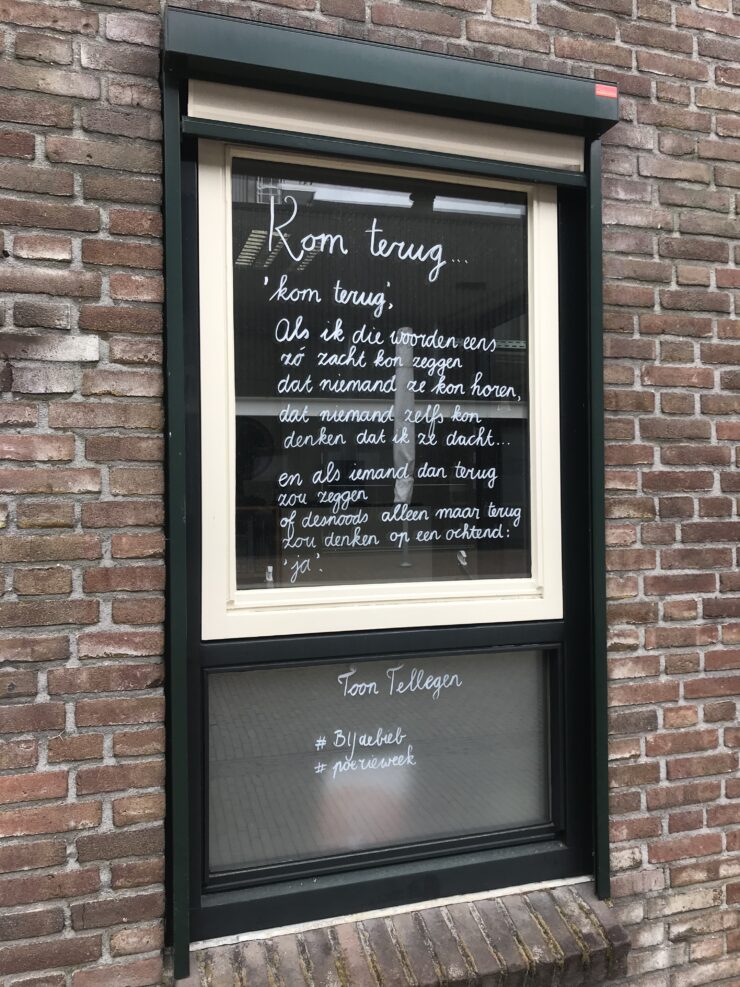 Kom terug...
'kom terug',
Als ik die woorden eens
zó zacht kon zeggen
dat niemand ze kon horen,
dat niemand zelfs kon
denken dat ik ze dacht...
en als iemand dan terug
zou zeggen
of desnoods alleen maar terug
zou denken op een ochtend:
'ja'.
Toon Tellegen
# Bijdebieb
# poëzieweek